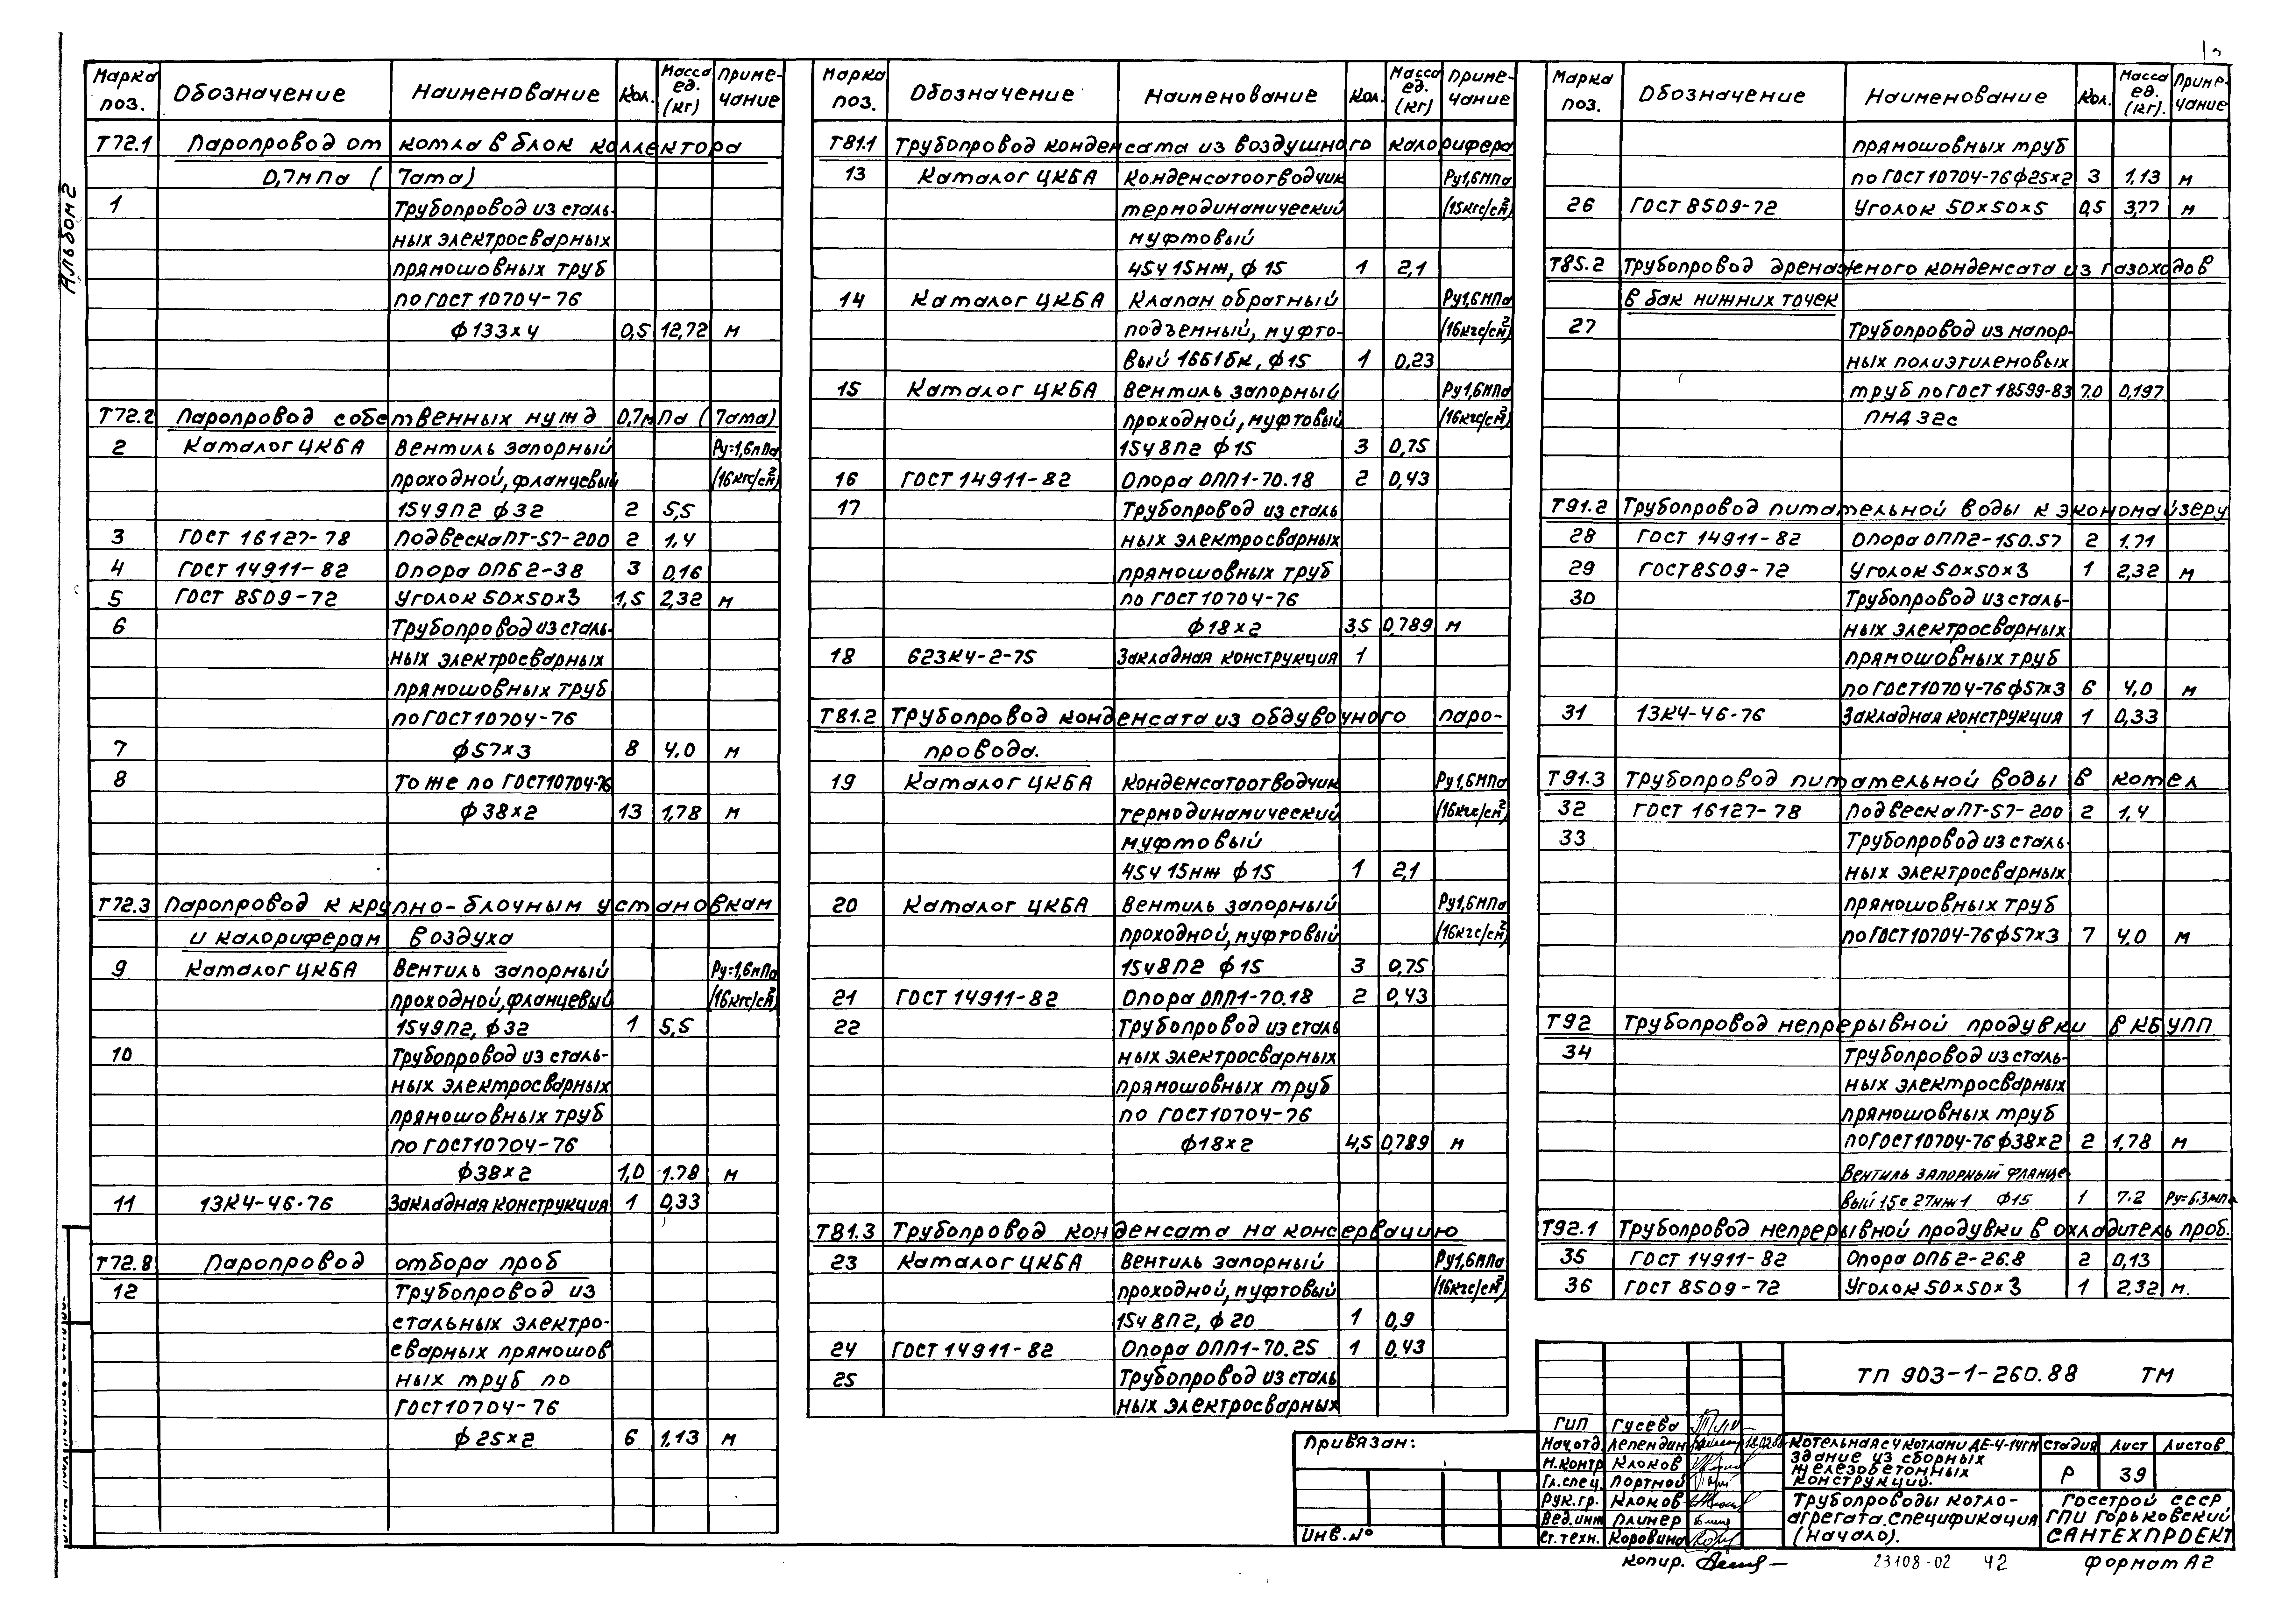 Альбом 2
Марка поз. Обозначение Наименование Кол. Масса ед. (кг) Примечание
Т72.1 Паропровод от котла в блок коллектора
0,7мпа ( 7ата)
1 Трубопровод из сталь-
ных электросварных
прямошовных труб
по ГОСТ 10704-76
ф133х4 0,5 12,72 м
Т72.2 Паропровод собственных нужд 0,7мПа ( 7ата)
2 Каталог ЦКБА Вентиль запорный Ру=1,6мПа
проходной, фланцевый (16кгс/см²)
15ч9п2 ф32 2 5,5
3 ГОСТ 16127-78 Подвеска ПТ-57-200 2 1.4
4 ГОСТ 14911-82 Опора ОПБ2-38 3 0,16
5 ГОСТ 8509-72 Уголок 50х50х3 1,5 2,32 м
6 Трубопровод из сталь-
ных электросварных
прямошовных труб
по ГОСТ 10704-76
7 ф57х3 8 4.0 м
8 То же по ГОСТ10704-76
ф38х2 13 1,78 м
Т72.3 Паропровод к крупно-блочным установкам
и калориферам воздуха
9 Каталог ЦКБА Вентиль запорный Ру=1,6мПа
проходной, фланцевый (16кгс/см²)
15ч9п2, ф32 1 5,5
10 Трубопровод из сталь-
ных электросварных
прямошовных труб
по ГОСТ10704-76
ф38х2 1,0 1.78 м
11 13К4-46-76 Закладная конструкция 1 0,33
Т72.8 Паропровод отбора проб
12 Трубопровод из
стальных электро-
сварных прямошов
ных труб по
ГОСТ10704-76
ф25х2 6 1,13 м
Марка поз. Обозначение Наименование Кол. Масса ед. (кг) Примечание
Т81.1 Трубопровод конденсата из воздушного калорифера
13 Каталог ЦКБА Конденсатоотводчик Ру1,6мПа
термодинамический (15кгс/см²)
муфтовый
45ч15нж, ф15 1 2,1
14 Каталог ЦКБА Клапан обратный Ру1,6мПа
подъемный, муфто- (16кгс/см²)
вый 16Б1бк, ф15 1 0,23
15 Каталог ЦКБА Вентиль запорный Ру1,6мПа
проходной, муфтовый (16кгс/см²)
15ч8п2 ф15 3 0,75
16 ГОСТ 14911-82 Опора ОПП1-70.18 2 0,43
17 Трубопровод из сталь
ных электросварных
прямошовных труб
по ГОСТ10704-76
ф18х2 3,5 0,789 м
18 623К4-2-75 Закладная конструкция 1
Т81.2 Трубопровод конденсата из обдувочного паро-
провода.
19 Каталог ЦКБА Конденсатоотводчик Ру1,6мПа
термодинамический (16кгс/см²)
муфтовый
45ч15нж ф15 1 2,1
20 Каталог ЦКБА Вентиль запорный Ру1,6мПа
проходной, муфтовый (16кгс/см²)
15ч8п2 ф15 3 0,75
21 ГОСТ 14911-82 Опора ОПП1-70.18 2 0,43
22 Трубопровод из сталь
ных электросварных
прямошовных труб
по ГОСТ10704-76
ф18х2 4,5 0,789 м
Т81.3 Трубопровод конденсата на консервацию
23 Каталог ЦКБА Вентиль запорный Ру1,6мПа
проходной, муфтовый (16кгс/см²)
15ч8п2, ф20 1 0,9
24 ГОСТ 14911-82 Опора ОПП1-70.25 1 0,43
25 Трубопровод из сталь
ных электросварных
Марка поз. Обозначение Наименование Кол. Масса ед. (кг). Примечание
прямошовных труб
по ГОСТ10704-76 ф25х2 3 1,13 м
26 ГОСТ 8509-72 Уголок 50х50х5 0,5 3,77 м
Т85.2 Трубопровод дренажного конденсата из газоходов
в бак нижних точек
27 Трубопровод из напор-
ных полиэтиленовых
труб по ГОСТ 18599-83 7.0 0,197
ПНД 32с
Т91.2 Трубопровод питательной воды к экономайзеру
28 ГОСТ 14911-82 Опора ОПП2-150.57 2 1.71
29 ГОСТ8509-72 Уголок 50х50х3 1 2,32 м
30 Трубопровод из сталь-
ных электросварных
прямошовных труб
по ГОСТ10704-76 ф57х3 6 4,0 м
31 13К4-46-76 Закладная конструкция 1 0,33
Т91.3 Трубопровод питательной воды в котел
32 ГОСТ 16127-78 Подвеска ПТ-57-200 2 1,4
33 Трубопровод из сталь-
ных электросварных
прямошовных труб
по ГОСТ10704-76 ф57х3 7 4,0 м
Т92 Трубопровод непрерывной продувки в КБУПП
34 Трубопровод из сталь-
ных электросварных
прямошовных труб
по ГОСТ10704-76 ф38х2 2 1,78 м
Вентиль запорный фланце-
вый 15с27нж1 ф15 1 7.2 Ру=6.3мпа
Т92.1 Трубопровод непрерывной продувки в охладитель проб.
35 ГОСТ 14911-82 Опора ОПБ2-26.8 2 0,13
36 ГОСТ 8509-72 Уголок 50х50х3 1 2,32 м.
Привязан:
Инв.№
ТП 903-1-260.88 ТМ
ГИП Гусева
Нач.отд. Лепендин
Н.контр Клоков
Гл.спец. Портной
Рук.гр. Клоков
Вед.инж Плинер
Ст.техн. Коровина
Котельная с 4 котлами ДЕ-4-14ГМ
Здание из сборных
железобетонных
конструкций.
Стадия Лист Листов
Р 39
Трубопроводы котло-
агрегата. Спецификация
(начало).
Госстрой СССР
ГПИ Горьковский
САНТЕХПРОЕКТ
Копир.
23108-02 42
Формат А2